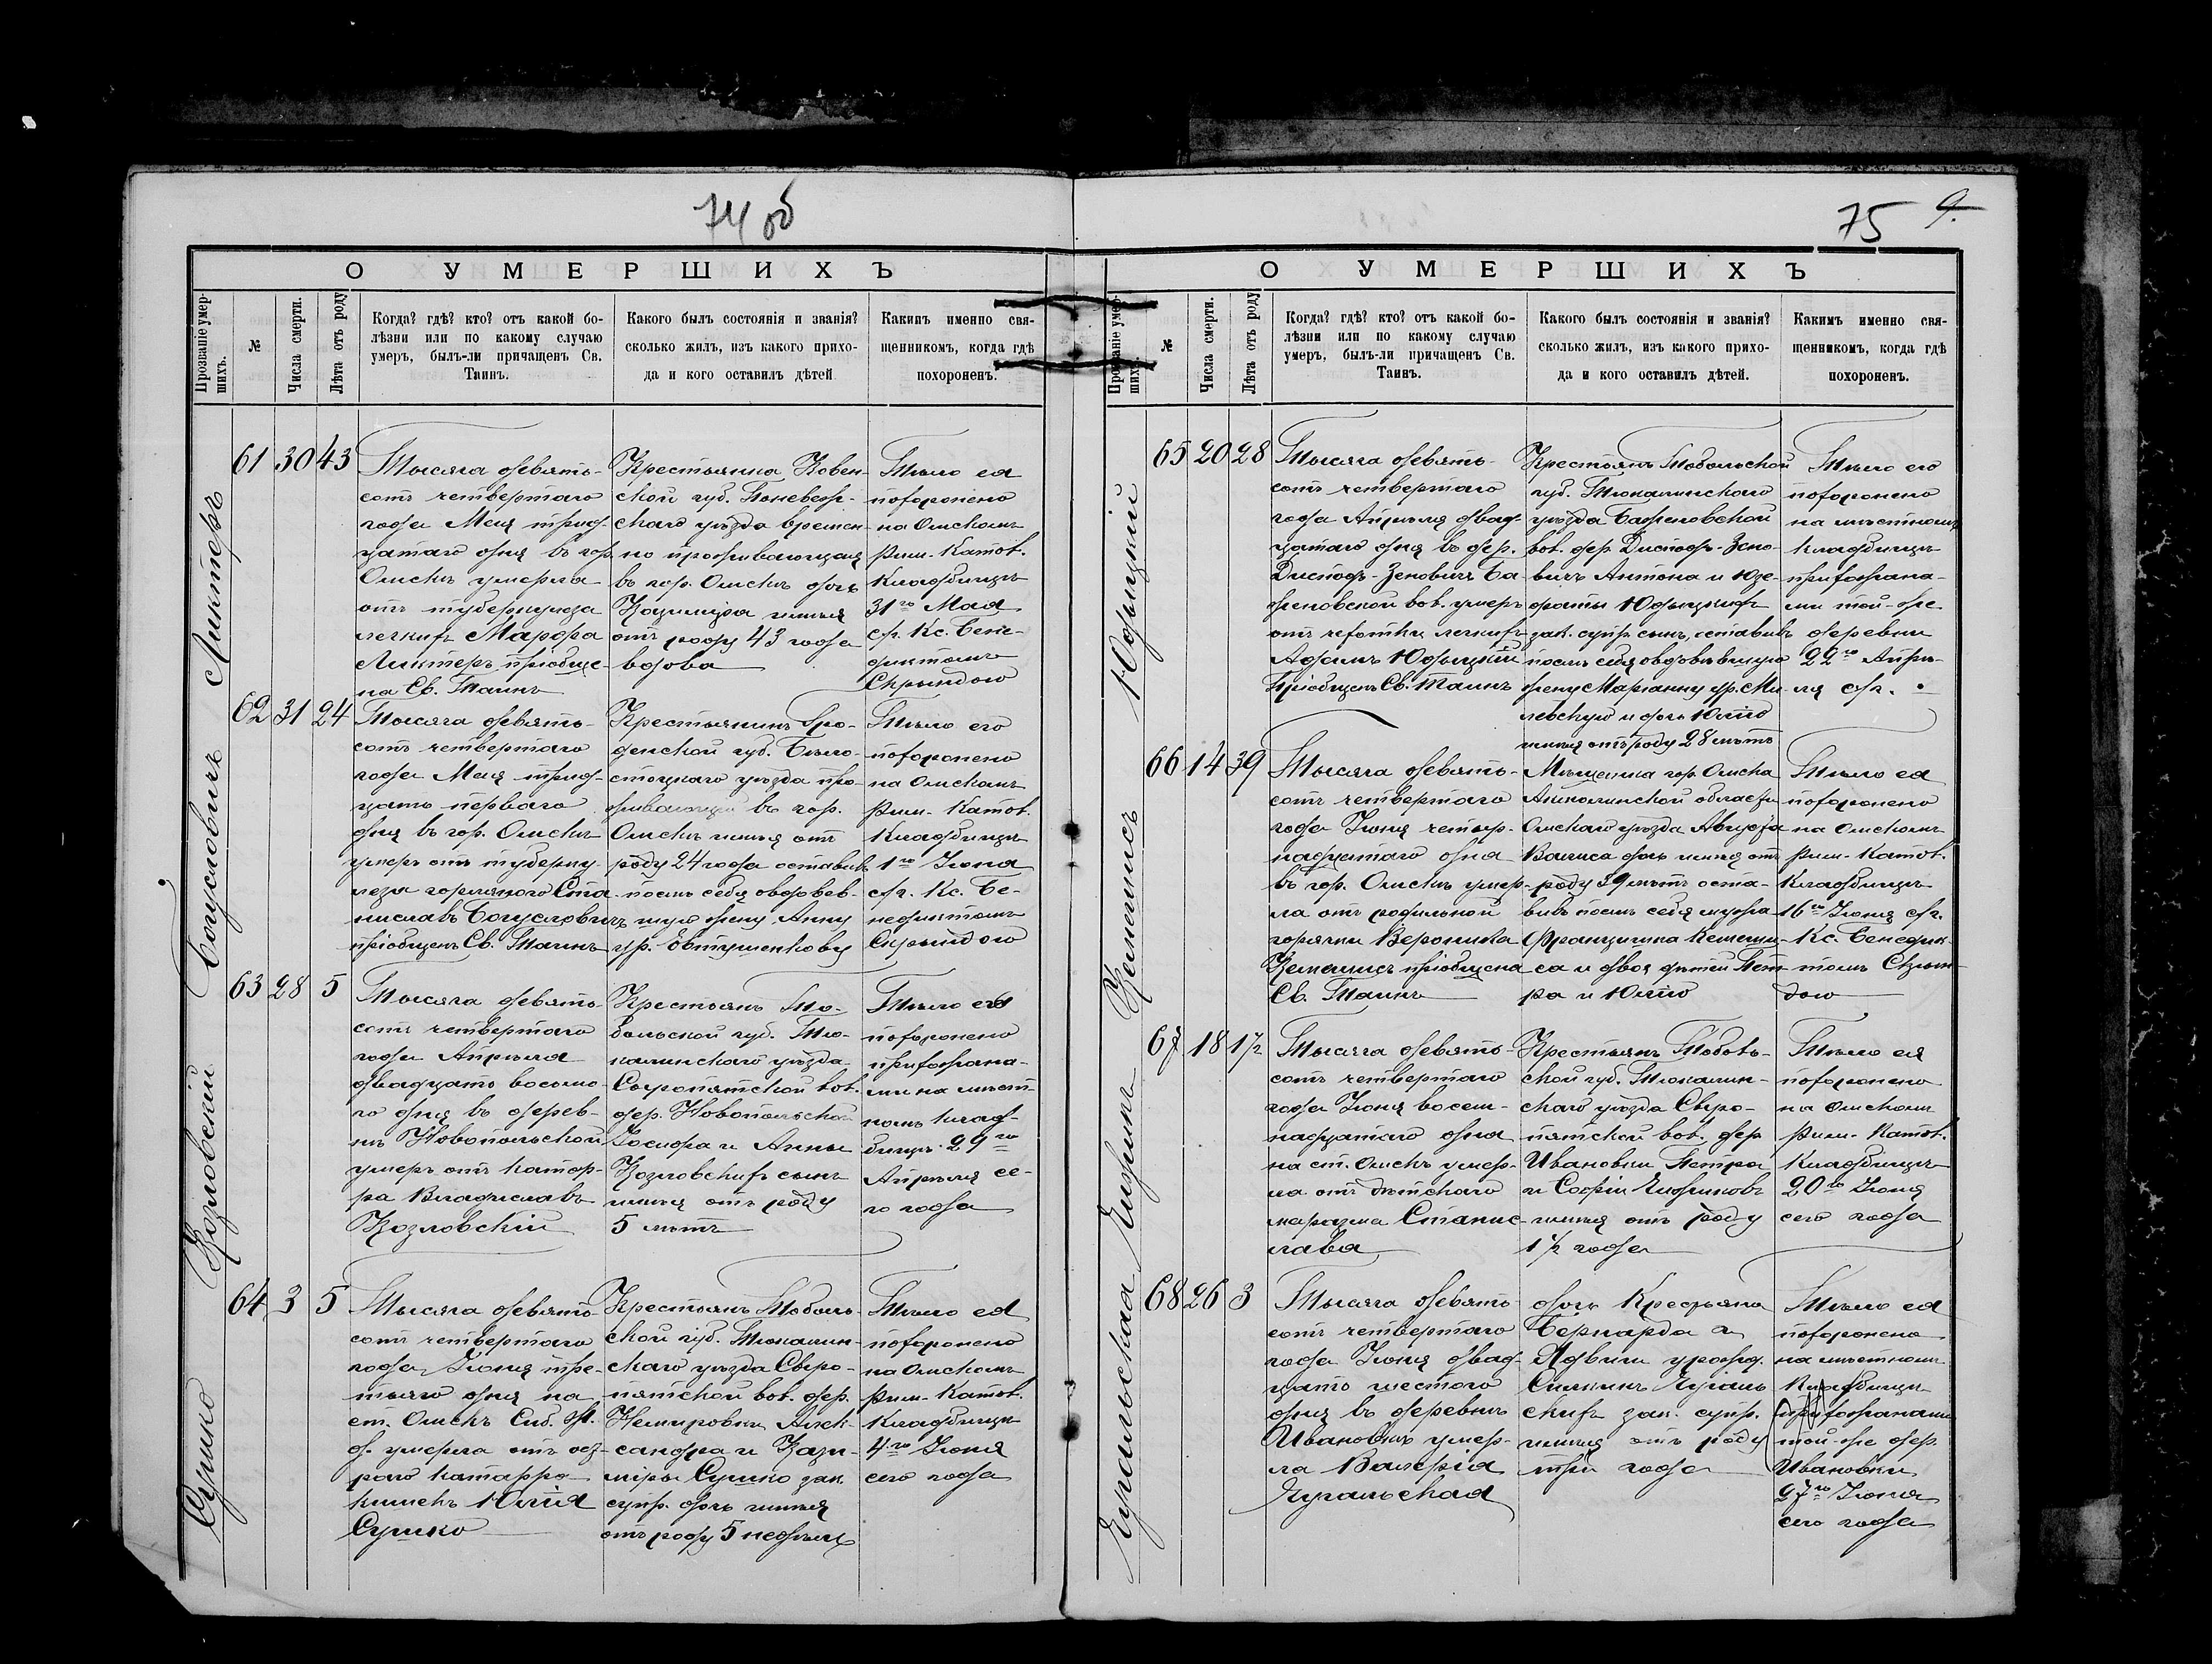 74 об
О УМЕРШИХЪ
Прозваніе умер-
шихъ.
№
Числа смерти.
Лѣта отъ роду
Когда? гдѣ? кто? отъ какой бо-
лѣзни или по какому случаю
умеръ, былъ-ли причащенъ Св.
Таинъ.
Какого былъ состоянія и званія?
сколько жилъ, изъ какого прихо-
да и кого оставилъ дѣтей
Какимъ именно свя-
щенникомъ, когда гдѣ
похороненъ.
Линтеръ
61 30 43
Тысяча девять-
сотъ четвертаго
года Мая трид-
цатаго дня въ гор.
Омскѣ умерла
отъ туберкулеза
легкихъ Марфа
Линтеръ пріобще-
на Св. Таинъ
Крестьянка Ковен-
ской губ. Поневеж-
скаго уѣзда времен-
но проживающая
въ гор. Омскѣ дочь
Казиміра имѣя
отъ роду 43 года
вдова
Тѣло ея
похоронено
на Омскомъ
Рим.-Катол.
Кладбищѣ
31го Мая
с/г. Кс. Бене-
диктомъ
Скрындою
Богусловичъ
62 31 24
Тысяча девять-
сотъ четвертаго
года Мая трид-
цать перваго
дня въ гор. Омскѣ
умеръ отъ туберку-
леза горлянаго Ста-
ниславъ Богусловичъ
пріобщенъ Св. Таинъ
Крестьянинъ Гро-
дненской губ. Бѣло-
стоцкаго уѣзда про-
живающій въ гор.
Омскѣ имѣя отъ
роду 24 года оставивъ
послѣ себя овдовѣв-
шую жену Анну
ур. Евтушенкову
Тѣло его
похоронено
на Омскомъ
Рим.-Катол.
Кладбищѣ
1го Іюня
с/г. Кс. Бе-
недиктомъ
Скрындою
Козловскій
63 28 5
Тысяча девять-
сотъ четвертаго
года Апрѣля
двадцать восьмо-
го дня въ дерев-
нѣ Новопольской
умеръ отъ катар-
ра Владиславъ
Козловскій
Крестьянъ То-
больской губ. Тю-
калинскаго уѣзда
Сыропятской вол.
дер. Новопольской
Іосифа и Анны
Козловскихъ сынъ
имѣя отъ роду
5 лѣтъ
Тѣло его
похоронено
прихожана-
ми на мѣст-
номъ клад-
бищѣ 29го
Апрѣля се-
го года
Сушко
64 3 5
Тысяча девять-
сотъ четвертаго
года Іюня тре-
тьяго дня на
ст. Омскъ Сиб. ж.
д. умерла отъ ост-
раго катарра
кишекъ Юлія
Сушко
Крестьянъ Тоболь-
ской губ. Тюкалин-
скаго уѣзда Сыро-
пятской вол. дер.
Немировки Алек-
сандра и Кази-
міры Сушко зак.
супр. дочь имѣя
отъ роду 5 недѣль
Тѣло ея
похоронено
на Омскомъ
Рим.-Катол.
Кладбищѣ
4го Іюня
сего года
75
О УМЕРШИХЪ
Прозваніе умер-
шихъ.
№
Числа смерти.
Лѣта отъ роду
Когда? гдѣ? кто? отъ какой бо-
лѣзни или по какому случаю
умеръ, былъ-ли причащенъ Св.
Таинъ.
Какого былъ состоянія и званія?
сколько жилъ, изъ какого прихо-
да и кого оставилъ дѣтей.
Какимъ именно свя-
щенникомъ, когда гдѣ
похороненъ.
Юдыцкій
65 20 28
Тысяча девять-
сотъ четвертаго
года Апрѣля двад-
цатаго дня въ дер.
Диспод-Зеновичъ Ба-
женовской вол. умеръ
отъ чахотки легкихъ
Адамъ Юдыцкій
Пріобщенъ Св. Таинъ
Крестьянъ Тобольской
губ. Тюкалинскаго
уѣзда Баженовской
вол. дер. Диспод-Зено-
вичъ Антона и Юзе-
фаты Юдыцкихъ
зак. супр. сынъ, оставивъ
послѣ себя овдовѣвшую
жену Маріанну ур. Ми-
левскую и дочь Юлію
имѣя отъ роду 28 лѣтъ
Тѣло его
похоронено
на мѣстномъ
кладбищѣ
прихожана-
ми той-же
деревни
22го Апрѣ-
ля с/г.
66 14 39
Тысяча девять-
сотъ четвертаго
года Іюня четыр-
надцатаго дня
въ гор. Омскѣ умер-
ла отъ родильной
горячки Вероника
пріобщена
Св. Таинъ
Мѣщанка гор. Омска
Акмолинской области
Омскаго уѣзда
дочь имѣя отъ
роду 39 лѣтъ оста-
вивъ послѣ себя мужа
Францишка
и двоя дѣтей Пет-
ра и Юлію
Тѣло ея
похоронено
на Омскомъ
Рим.-Катол.
Кладбищѣ
16го Іюня с/г.
Кс. Бенедик-
томъ Скрын-
дою
67 18 1½
Тысяча девять-
сотъ четвертаго
года Іюня восем-
надцатаго дня
на ст. Омскъ умер-
ла отъ дѣтскаго
маразма Станис-
лава
Крестьянъ Тоболь-
ской губ. Тюкалин-
скаго уѣзда Сыро-
пятской вол. дер
Ивановки Петра
и Софіи
имѣя отъ роду
1½ года
Тѣло ея
похоронено
на Омскомъ
Рим.-Катол.
Кладбищѣ
20го Іюня
сего года
68 26 3
Тысяча девять-
сотъ четвертаго
года Іюня двад-
цать шестого
дня въ деревнѣ
Ивановкѣ умер-
ла Валерія
дочь Крестьянъ
Бернарда и
Ядвиги урожд.
зак. супр.
имѣя отъ роду
три года
Тѣло ея
похоронено
на мѣстномъ
Кладбищѣ
прихожанами
той-же дер.
Ивановки
27го Іюня
сего года